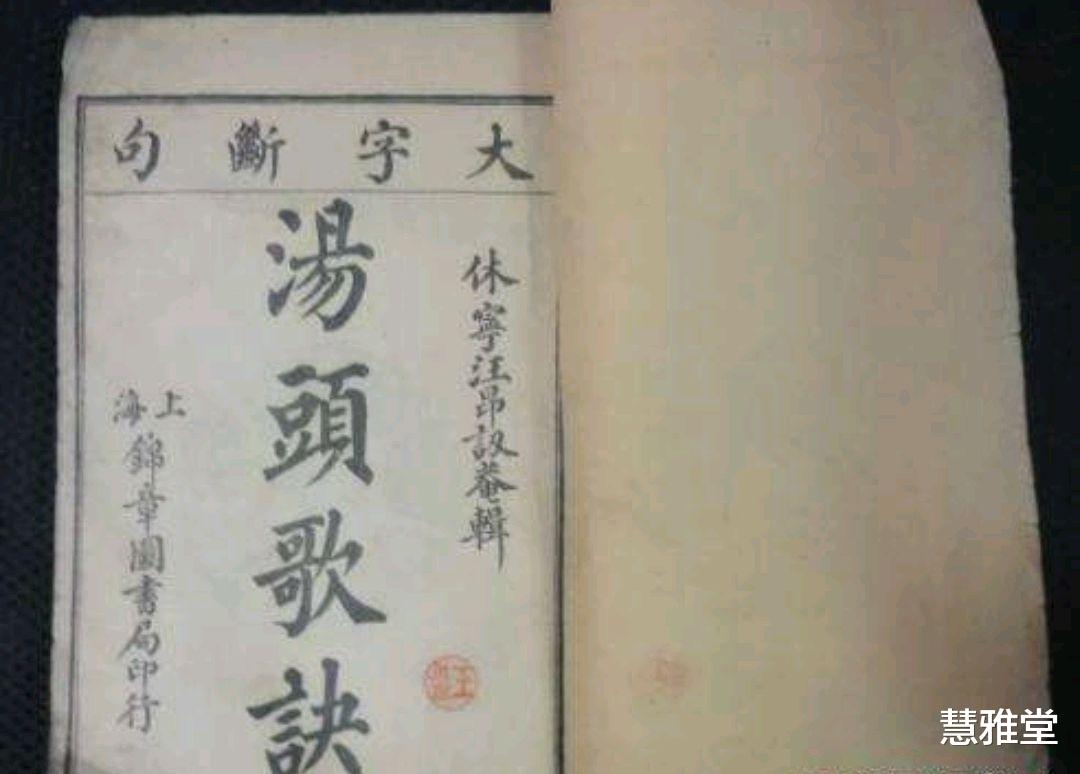 大字斷句
休寧汪昂訒菴輯
湯頭歌訣
上海錦章圖書局印行
慧雅堂